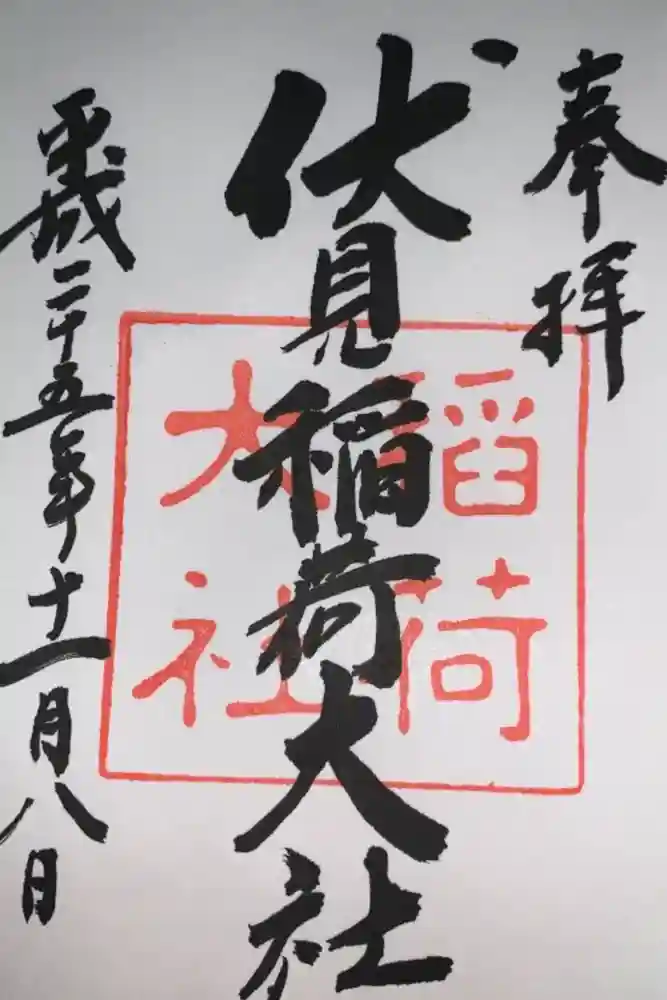 奉拝
伏見稲荷大社
稲荷
大社
平成二十五年十一月八日